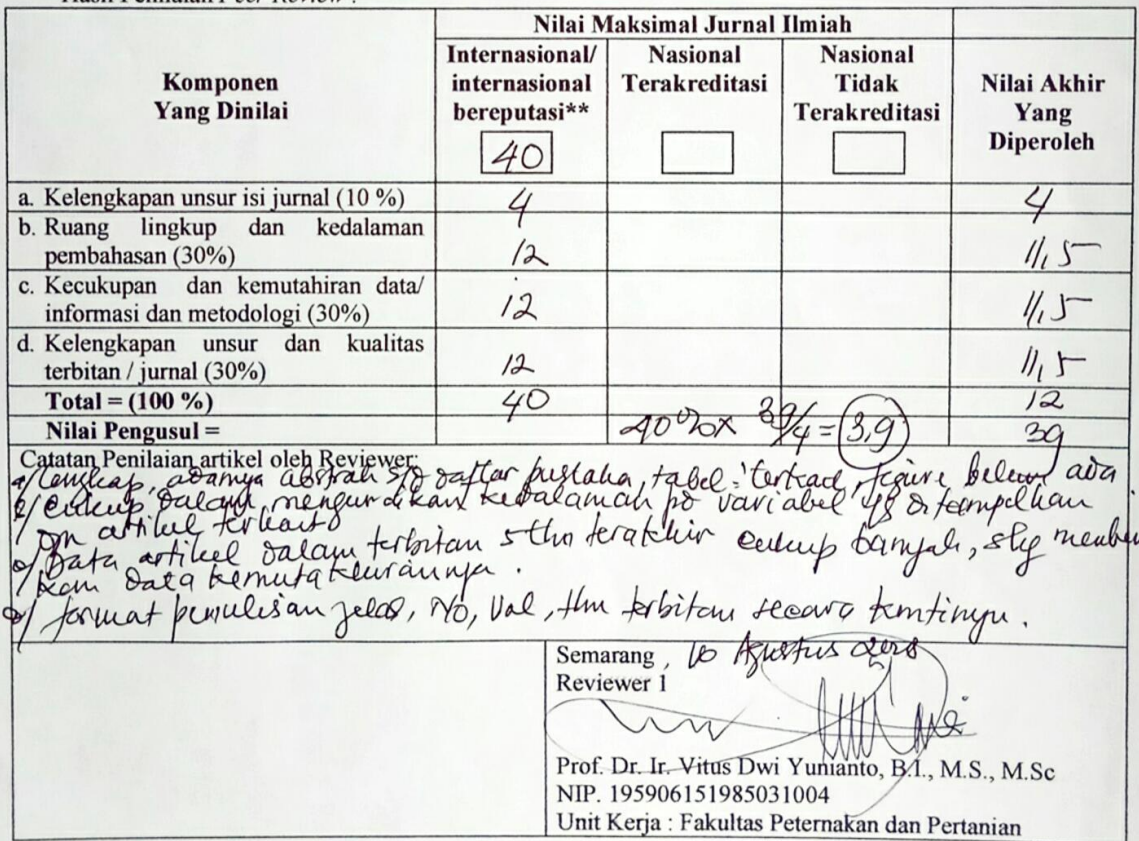 Hasil Penilaian Peer Review :
Komponen
Yang Dinilai
Nilai Maksimal Jurnal Ilmiah
Internasional/
internasional
bereputasi**
40
Nasional
Terakreditasi
Nasional
Tidak
Terakreditasi
Nilai Akhir
Yang
Diperoleh
a. Kelengkapan unsur isi jurnal (10 %) 4 4
b. Ruang lingkup dan kedalaman
pembahasan (30%) 12 11,5
c. Kecukupan dan kemutahiran data/
informasi dan metodologi (30%) 12 11,5
d. Kelengkapan unsur dan kualitas
terbitan / jurnal (30%) 12 11,5
Total = (100 %) 40 12
Nilai Pengusul = 40% x 39/4 = 3,9 39
Catatan Penilaian artikel oleh Reviewer:
a/ Lengkap, adanya abstrak s/d daftar pustaka, tabel figure belum ada
b/ cukup dalam menguraikan kedalaman variabel yg ditampilkan
artikel terkait
c/ Data artikel dalam terbitan 5 thn terakhir cukup banyak, shg member
kan data kemutakhirannya.
d/ format penulisan jelas, No, Vol, thn terbitan secara kontinyu.
Semarang, Agustus
Reviewer 1
Prof. Dr. Ir. Vitus Dwi Yunianto, B.I., M.S., M.Sc
NIP. 195906151985031004
Unit Kerja : Fakultas Peternakan dan Pertanian